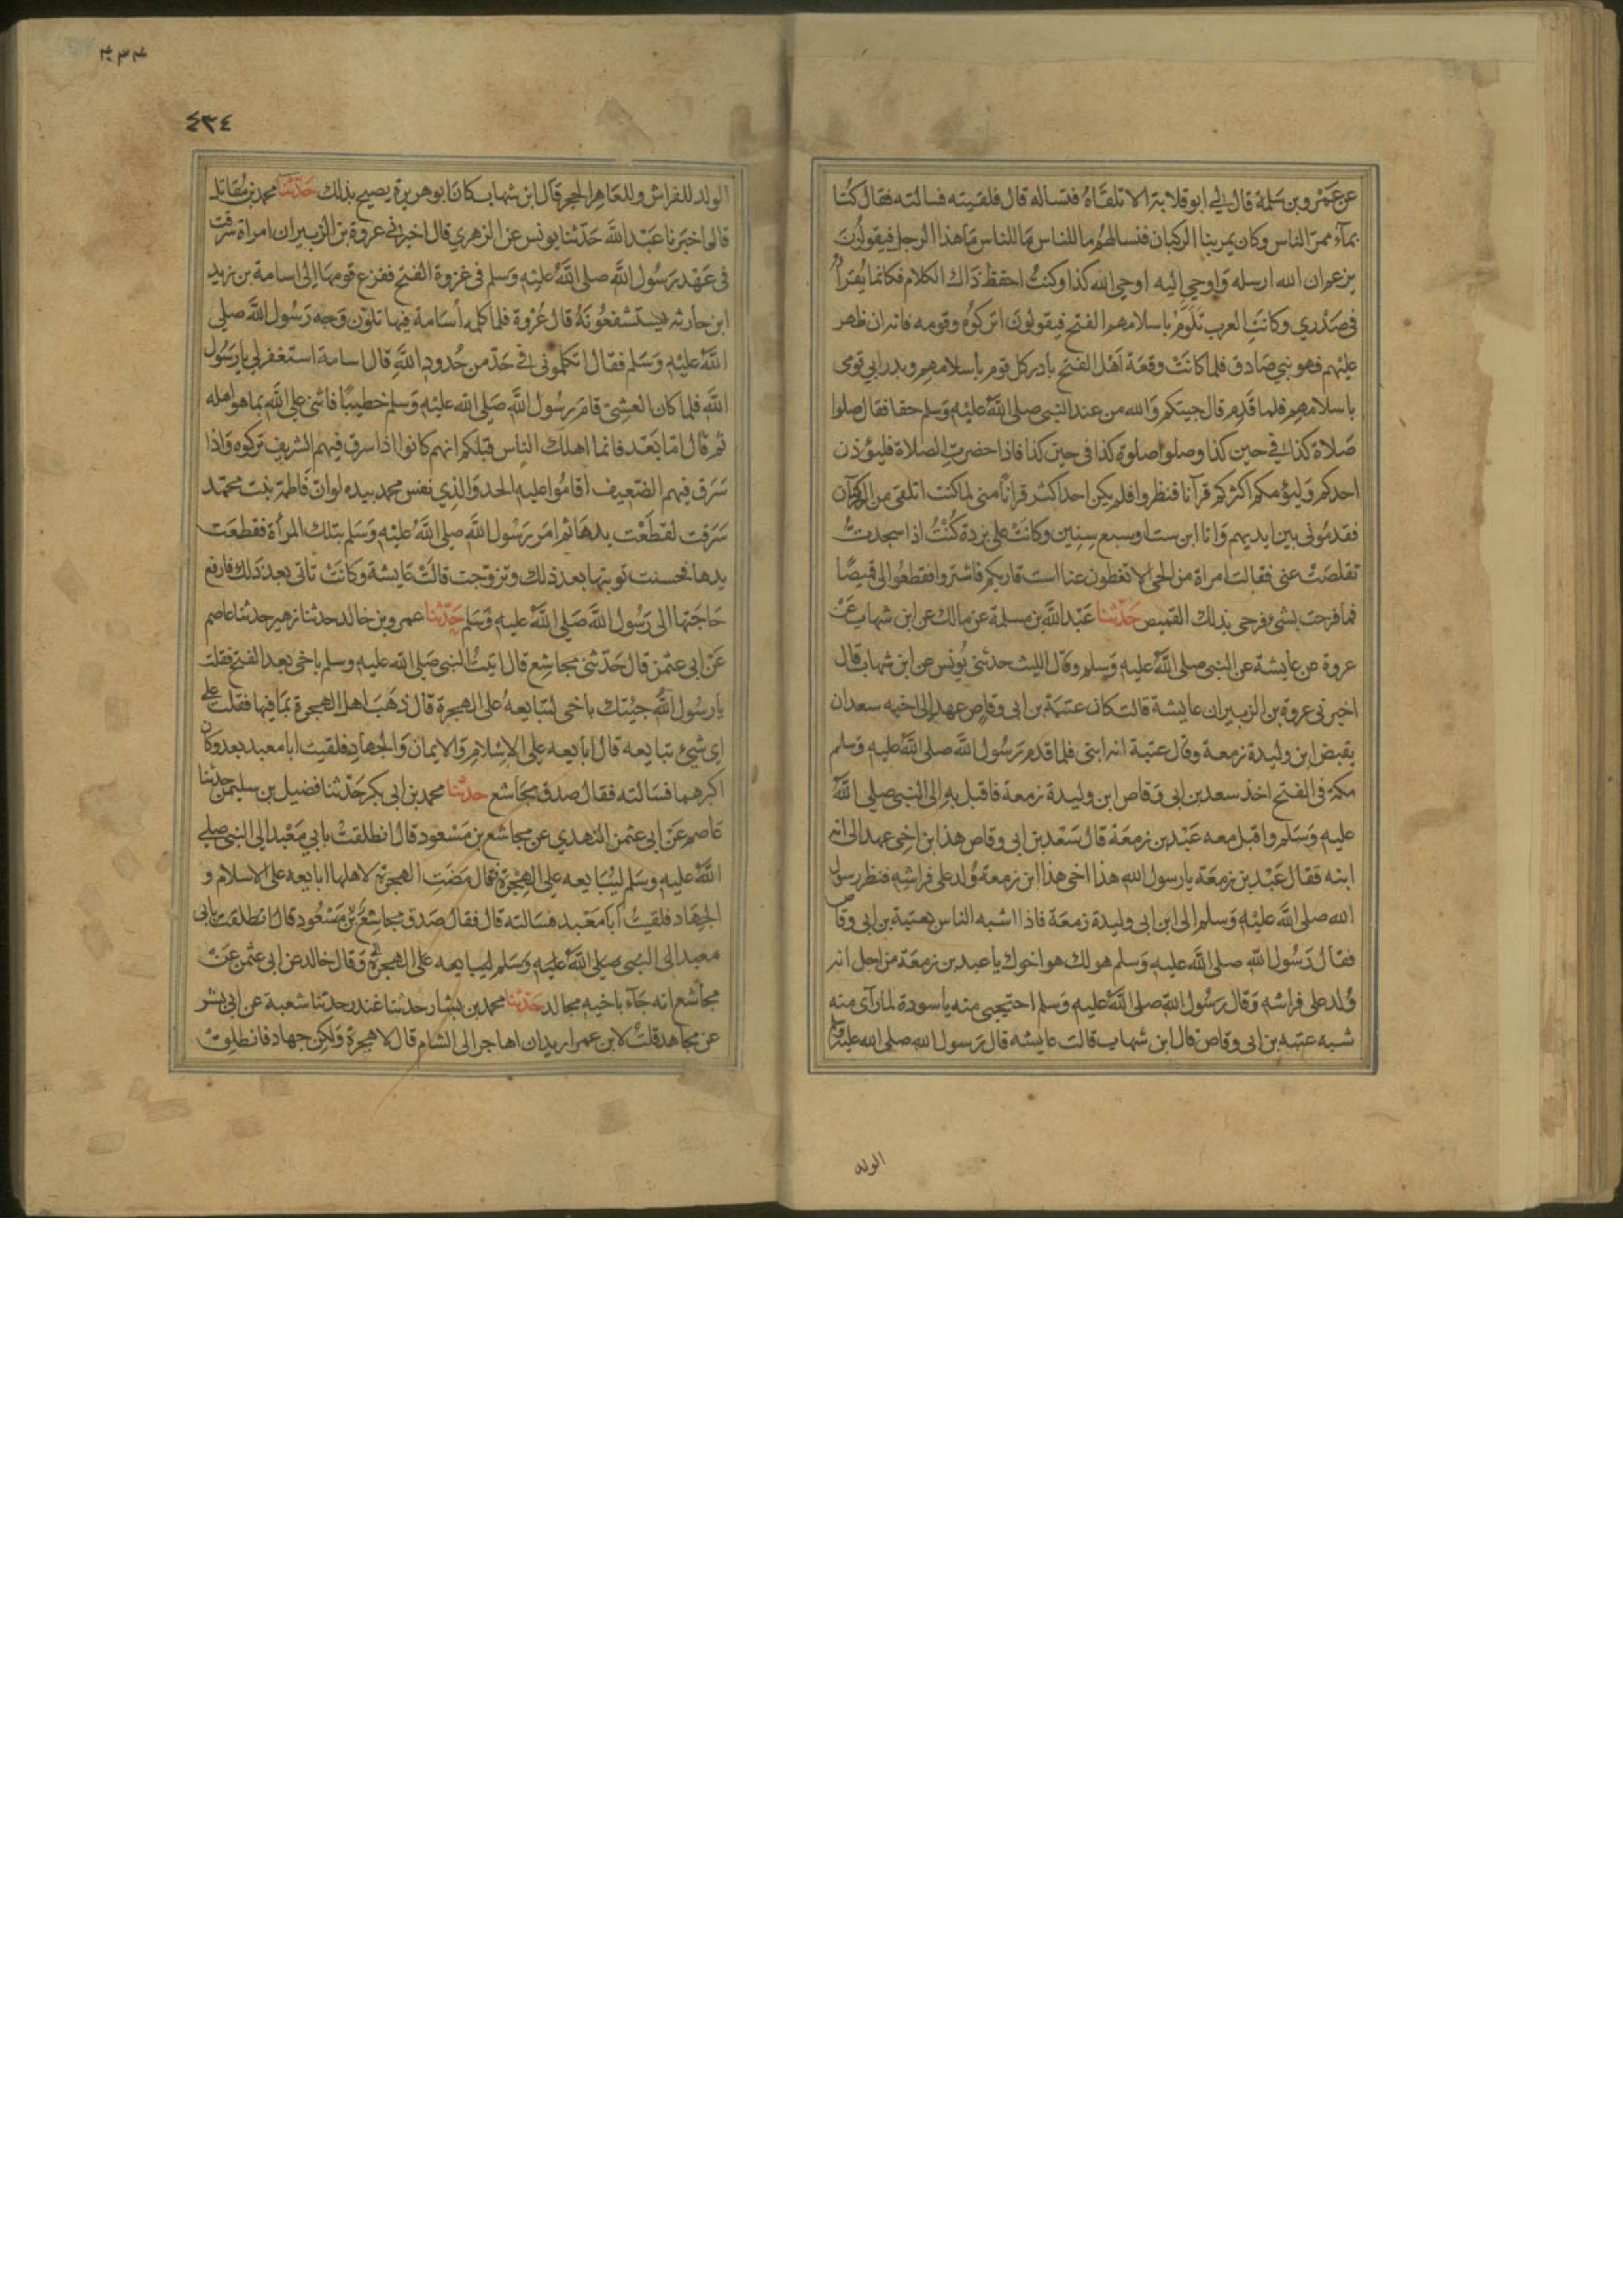 عن عمرو بن سلمة قال لي ابو قلابة الا تلقاه فتساله قال فلقيته فسالته فقال كنا
بمآء ممر الناس وكان يمر بنا الركبان فنسالهم ما للناس ما للناس ما هذا الرجل فيقولون
يزعم ان الله ارسله واوحي اليه اوحي الله كذا وكنت احفظ ذاك الكلام فكانما يقرأ
في صدري وكانت العرب تلوم باسلامهم الفتح فيقولون اتركوه وقومه فانه ان ظهر
عليهم فهو نبي صادق فلما كانت وقعة اهل الفتح بادر كل قوم باسلامهم وبدر ابي قومى
باسلامهم فلما قدم قال جيتكم والله من عند النبى صلى الله عليه وسلم حقا فقال صلوا
صلاة كذا في حين كذا وصلوا صلوة كذا فى حين كذا فاذا حضرت الصلاة فليؤذن
احدكم وليؤمكم اكثركم قرآنا فنظروا فلم يكن احد اكثر قرانا منى لما كنت اتلقى من الركبان
فقدمونى بين ايديهم وانا ابن ست او سبع سنين وكانت على بردة كنت اذا سجدت
تقلصت عنى فقالت امراة من الحى الا تغطون عنا است قاريكم فاشتروا فقطعوا لى قميصا
فما فرحت بشئ فرحى بذلك القميص حدثنا عبد الله بن مسلمة عن مالك عن ابن شهاب عن
عروة عن عايشة عن النبى صلى الله عليه وسلم وقال الليث حدثنى يونس عن ابن شهاب قال
اخبرنى عروة بن الزبير ان عايشة قالت كان عتبة بن ابى وقاص عهد الى اخيه سعد ان
يقبض ابن وليدة زمعة وقال عتبة انه ابنى فلما قدم رسول الله صلى الله عليه وسلم
مكة فى الفتح اخذ سعد بن ابى وقاص ابن وليدة زمعة فاقبل به الى النبى صلى الله
عليه وسلم واقبل معه عبد بن زمعة قال سعد بن ابى وقاص هذا ابن اخى عهد الى انه
ابنه فقال عبد بن زمعة يا رسول الله هذا اخى هذا ابن زمعة ولد على فراشه فنظر رسول
الله صلى الله عليه وسلم الى ابن ابى وليدة زمعة فاذا اشبه الناس بعتبة بن ابى وقاص
فقال رسول الله صلى الله عليه وسلم هو لك هو اخوك يا عبد بن زمعة من اجل انه
ولد على فراشه وقال رسول الله صلى الله عليه وسلم احتجبى منه يا سودة لما رآى منه
شبه عتبة بن ابى وقاص قال ابن شهاب قالت عايشه قال رسول الله صلى الله عليه وسلم
الولد
٤٣٤
٤٣٤
الولد للفراش وللعاهر الحجر قال ابن شهاب كان ابو هريرة يصيح بذلك حدثنا محمد بن مقاتل
قال اخبرنا عبد الله حدثنا يونس عن الزهري قال اخبرنى عروة بن الزبير ان امراة سرقت
فى عهد رسول الله صلى الله عليه وسلم فى غزوة الفتح ففزع قومها الى اسامة بن زيد
ابن حارثه يستشفعونه قال عروة فلما كلمه أسامة فيها تلون وجه رسول الله صلى
الله عليه وسلم فقال اتكلمونى فى حد من حدود الله قال اسامة استغفر لي يا رسول
الله فلما كان العشى قام رسول الله صلى الله عليه وسلم خطيبا فاثنى على الله بما هو اهله
ثم قال اما بعد فانما اهلك الناس قبلكم انهم كانوا اذا سرق فيهم الشريف تركوه واذا
سرق فيهم الضعيف اقاموا عليه الحد والذي نفس محمد بيده لو ان فاطمة بنت محمد
سرقت لقطعت يدها ثم امر رسول الله صلى الله عليه وسلم بتلك المرأة فقطعت
يدها فحسنت توبتها بعد ذلك وتزوجت قالت عايشة وكانت تاتى بعد ذلك فارفع
حاجتها الى رسول الله صلى الله عليه وسلم حدثنا عمرو بن خالد حدثنا زهير حدثنا عاصم
عن ابى عثمن قال حدثنى مجاشع قال اتيت النبى صلى الله عليه وسلم باخى بعد الفتح فقلت
يا رسول الله جئتك باخى لتبايعه على الهجرة قال ذهب اهل الهجرة بما فيها فقلت على
اي شيئ تبايعه قال ابايعه على الاسلام والايمان والجهاد فلقيت ابا معبد بعد وكان
اكبرهما فسالته فقال صدق مجاشع حدثنا محمد بن ابى بكر حدثنا فضيل بن سليمن حدثنا
عاصم عن ابى عثمن النهدي عن مجاشع بن مسعود قال انطلقت بابي معبد الى النبى صلى
الله عليه وسلم ليبايعه على الهجرة قال مضت الهجرة لاهلها ابايعه على الاسلام و
الجهاد فلقيت ابا معبد فسالته قال فقال صدق مجاشع بن مسعود قال انطلقت بابى
معبد الى النبى صلى الله عليه وسلم ليبايعه على الهجرة وقال خالد عن ابى عثمن عن
مجاشع انه جآء باخيه مجالد حدثنا محمد بن بشار حدثنا غندر حدثنا شعبة عن ابى بشر
عن مجاهد قلت لابن عمر اريد ان اهاجر الى الشام قال لا هجرة ولكن جهاد فانطلق